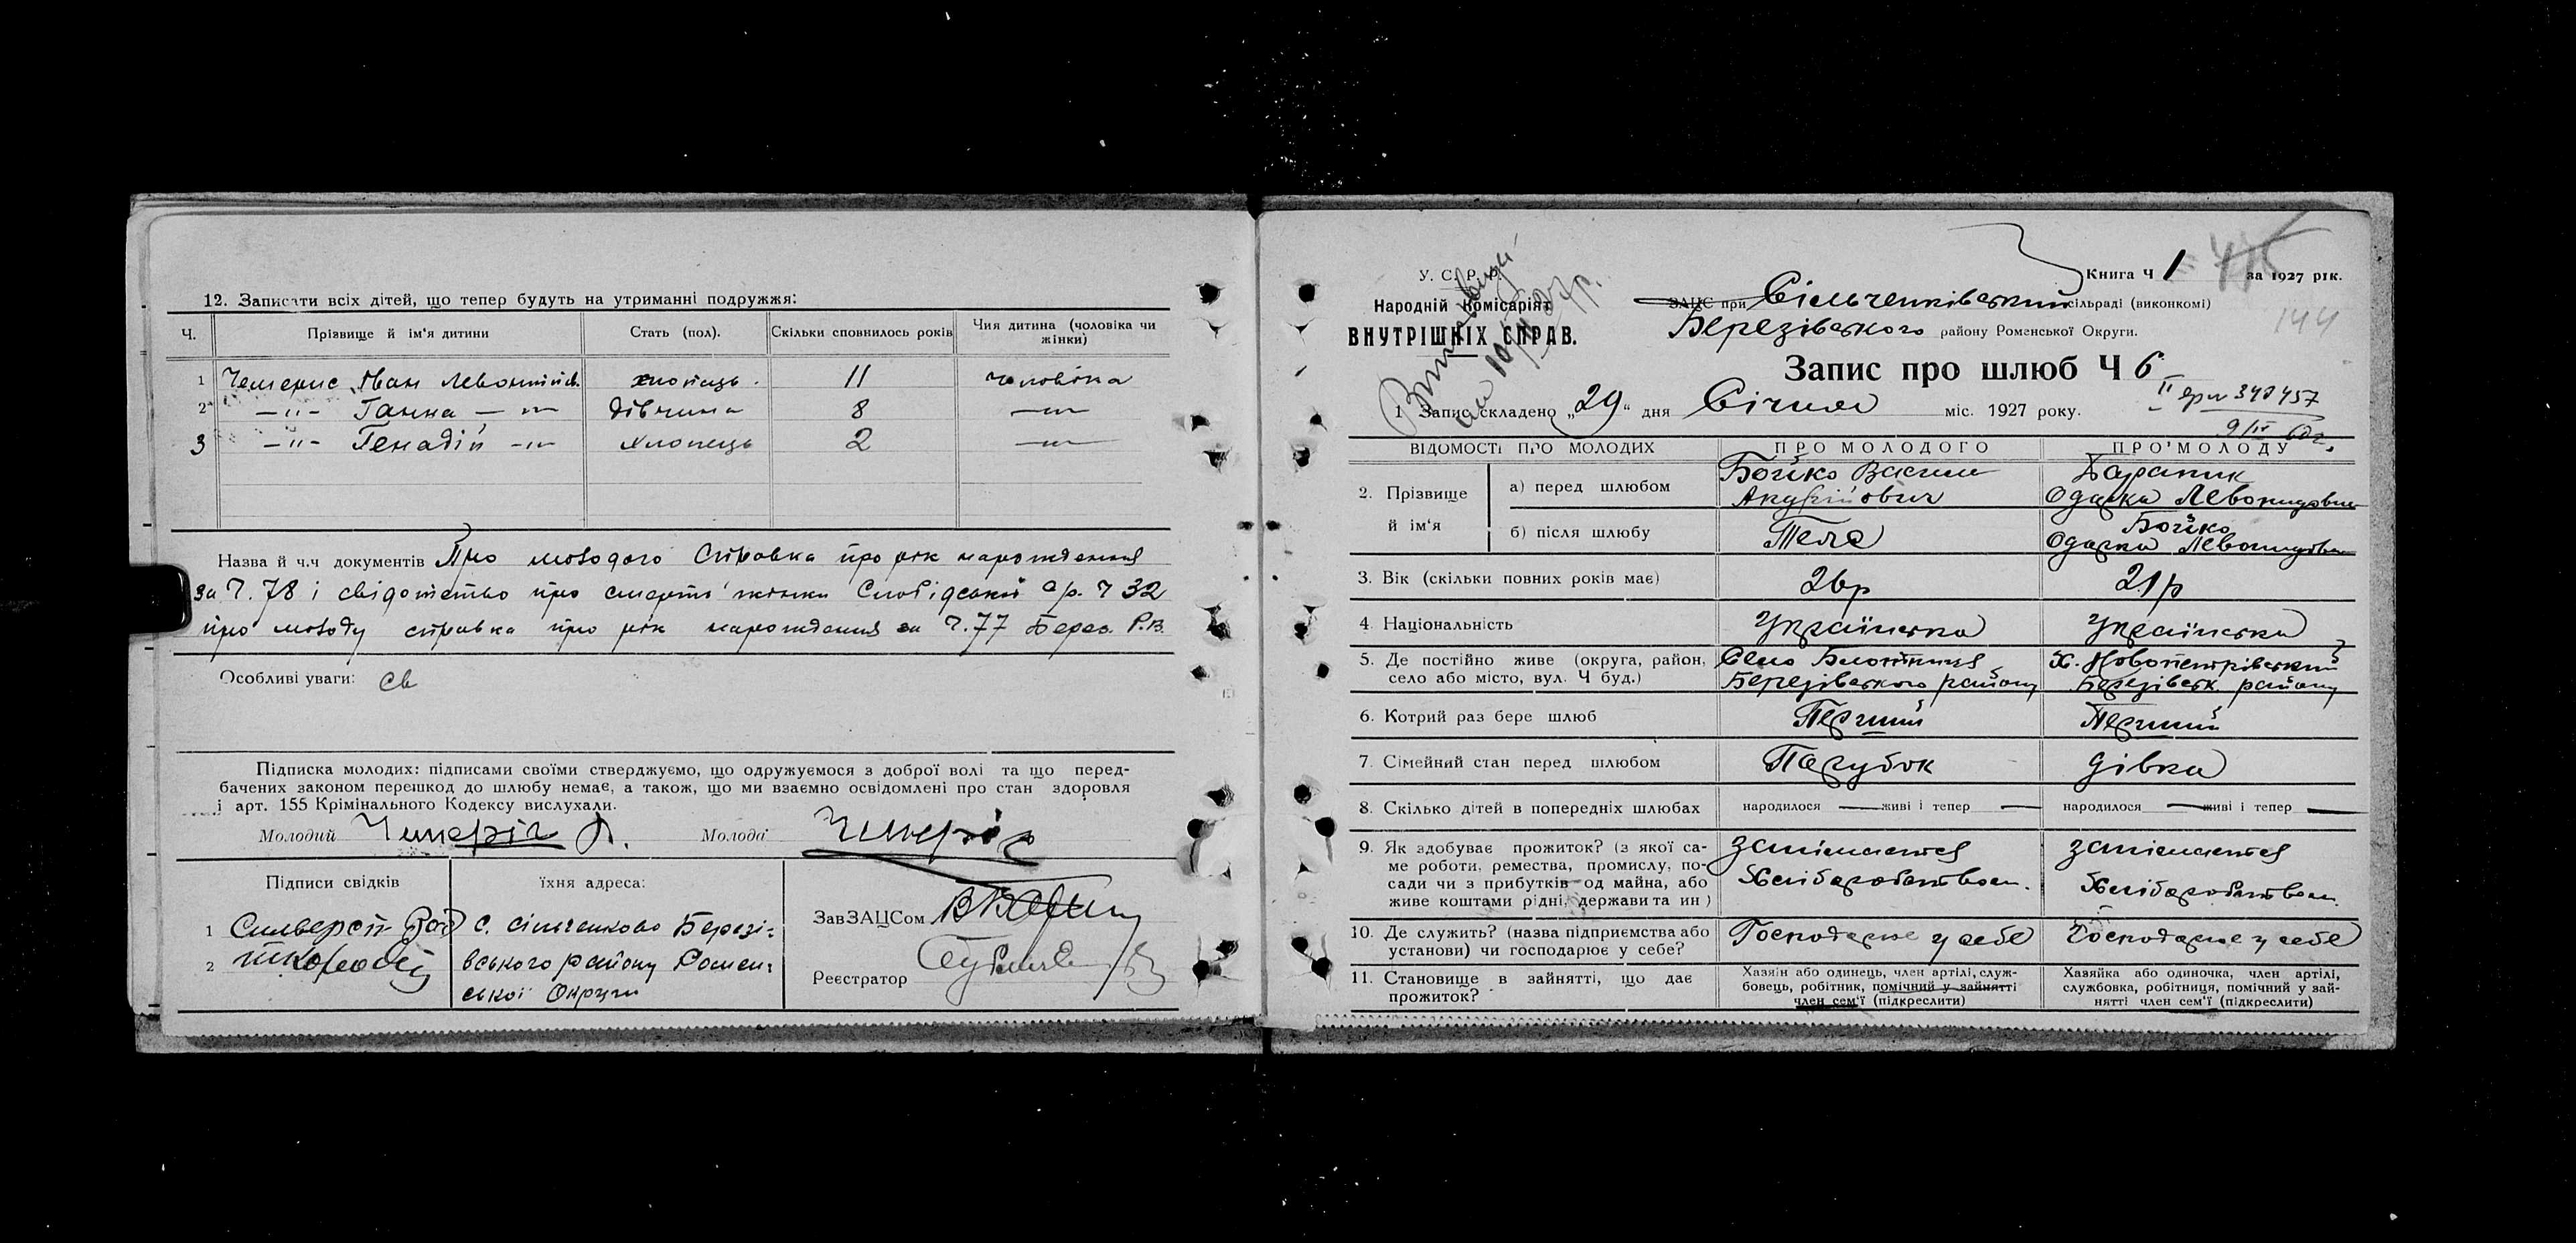 12. Записати всіх дітей, що тепер будуть на утриманні подружжя:
Ч. Прізвище й ім'я дитини Стать (пол). Скільки сповнилось років Чия дитина (чоловіка чи жінки)
1 Чемерис Іван Левонтійов. хлопець. 11 чоловіка
2 —"— Ганна —"— дівчина 8 —"—
3 —"— Генадій —"— хлопець 2 —"—
Назва й ч.ч документів Про молодого Справка про рік народження
за Ч. 78 і свідотство про смерть жінки Слобідської с/р. Ч 32
про молоду справка про рік народження за Ч. 77 Берез. Р.В.
Особливі уваги:
Підписка молодих: підписами своїми стверджуємо, що одружуємося з доброї волі та що перед-
бачених законом перешкод до шлюбу немає, а також, що ми взаємно освідомлені про стан здоровля
і арт. 155 Крімінального Кодексу вислухали.
Молодий Молода
Підписи свідків їхня адреса:
1 с. Сільченково Березі-
2 вського району Ромен-
ської Округи
ЗавЗАЦСом
Реєстратор
У. С. Р. Р.
Народній Комісаріят
ВНУТРІШНІХ СПРАВ.
Книга Ч 1 за 1927 рік.
ЗАЦС при Сільченківський сільраді (виконкомі)
Березівського району Роменської Округи.
144
Запис про шлюб Ч 6
1 Запис складено „29" дня Січня міс. 1927 року.
340457
ВІДОМОСТІ ПРО МОЛОДИХ ПРО МОЛОДОГО ПРО МОЛОДУ
2. Прізвище й ім'я
а) перед шлюбом Бойко Василь Бараник
Одарка Левонидовна
б) після шлюбу Теж Бойко
Одарка Левонидовна
3. Вік (скільки повних років має) 26р 21р
4. Національність Українська Українська
5. Де постійно живе (округа, район, Село Блотниця Х. Новопетрівський
село або місто, вул. Ч буд.) Березівського району Березівськ. району
6. Котрий раз бере шлюб Перший Перший
7. Сімейний стан перед шлюбом Парубок Дівка
8. Скілько дітей в попередніх шлюбах народилося — живі і тепер — народилося — живі і тепер —
9. Як здобуває прожиток? (з якої са- занімается занімается
ме роботи, ремества, промислу, по- Хліборобством. Хліборобством.
сади чи з прибутків од майна, або
живе коштами рідні, держави та ин)
10. Де служить? (назва підприємства або Господарює у себе Господарює у себе
установи) чи господарює у себе?
11. Становище в зайнятті, що дає Хазяїн або одинець, член артілі, служ- Хазяйка або одиночка, член артілі,
прожиток? бовець, робітник, помічний у зайнятті службовка, робітниця, помічний у зай-
член сем'ї (підкреслити) нятті член сем'ї (підкреслити)